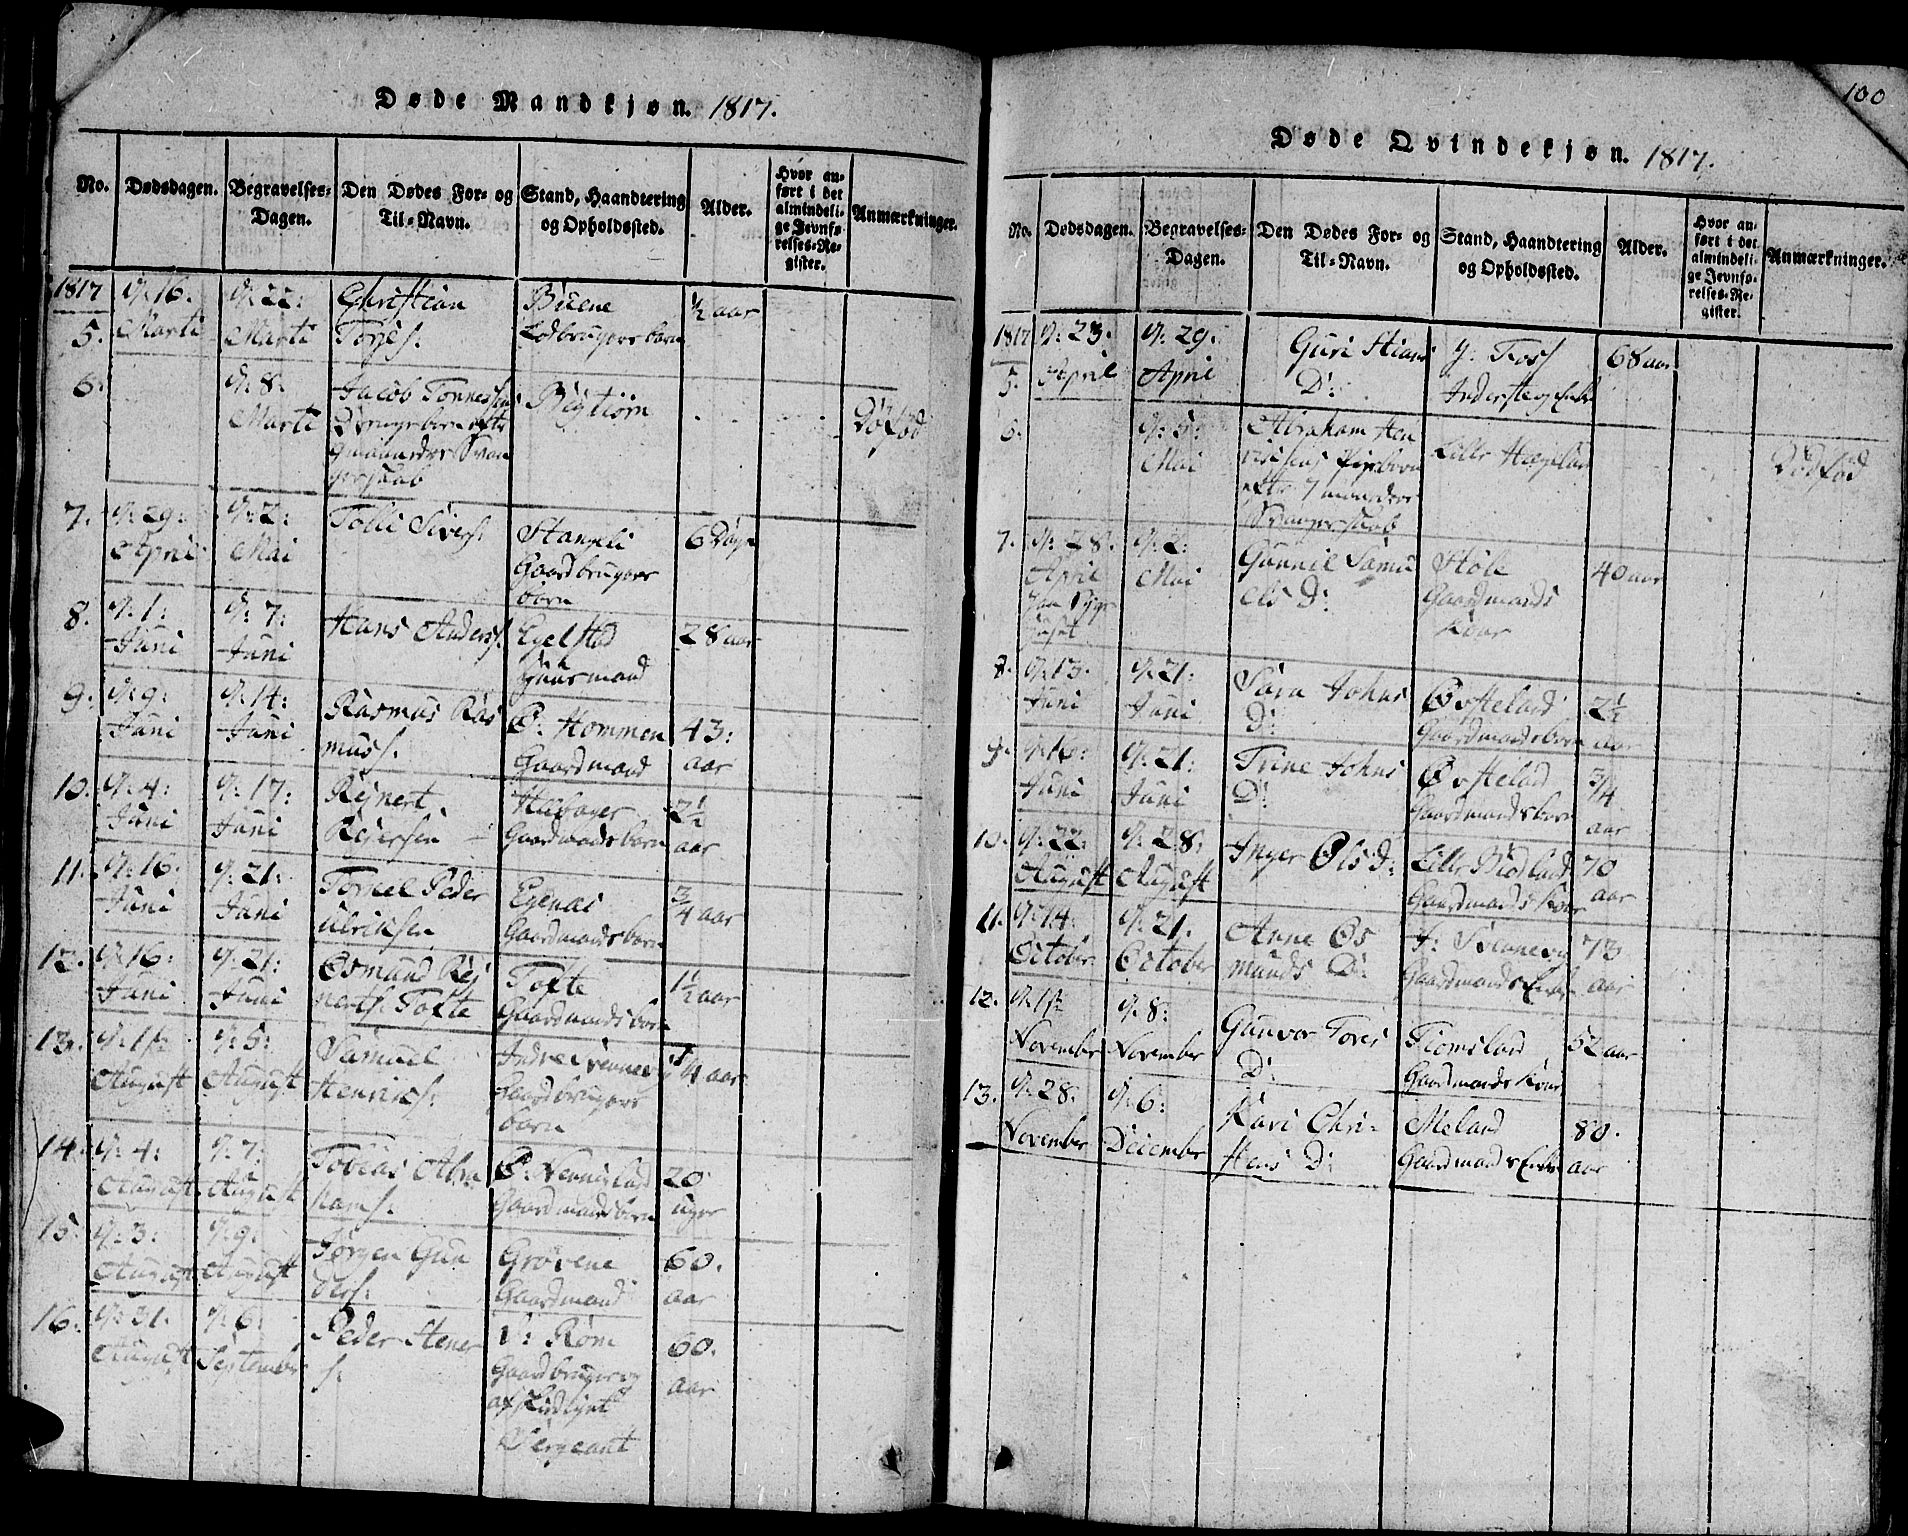 Døde Mandkjøn. 1817.
No. Dødsdagen. Begravelses-Dagen. Den Dødes For- og Til-Navn. Stand, Haandtering og Opholdssted. Alder. Hvor anført i det almindelige Jevnførelses-Register. Anmærkninger.
1817
5. d: 16. Marti d: 22: Marti Christian Torjes. Buene ½ aar
6. d: 8: Marti Jacob Tønnessens Bigtiørn Dödföd
7. d: 29: April d: 2: Mai Tolli Sivers: Stangeli Gaardbrugers barn 6 Dage
8. d: 1: Juni d: 7: Juni Hans Anders. Egelstad Huusmand 28 aar
9. d: 9: Juni d: 14: Juni Rasmus Rasmuss. Ø: Hommen Gaardmand 43: aar
10. d: 4: Juni d: 17: Juni Rejnert Rejersen Gaardmandsbarn 2½ aar
11. d: 16. Juni d: 21: Juni Torkel Pederulriksen Egenæs Gaardmandsbarn ¾ aar
12. d: 16: Juni d: 21: Juni Osmund Rejnerts. Tofte Tofte Gaardmandsbarn 1½ aar
13. d: 1ste August d: 5: August Samuel Henriks: Indre Svennevig Gaardbrugers barn ¼ aar
14. d: 4: August d: 7: August Tobias Abrahams. Ø: Nennigland Gaardmandsbarn 20 uger
15. d: 3: August d: 9: August Jørgen Gunders: Grøvene Gaardmand 60. aar
16. d: 31. August d: 6: September Peder Steners. V: Røm Gaardbruger og Sergeant 60. aar
100
Døde Qvindekjøn. 1817.
No. Dødsdagen. Begravelses-Dagen. Den Dødes For- og Til-Navn. Stand, Haandtering og Opholdssted. Alder. Hvor anført i det almindelige Jevnførelses-Register. Anmærkninger.
1817
5. d: 23. April d: 29. April Guri Stians D: Y. Foss Inderste og Enke 68 aar
6. d: 5: Mai Abraham Henriksens Pigebarn efter 7 maaneders Svangerskab Lille Hægeland Dödföd
7. d: 28. April d: 2: Mai Gunnil Samuels D: Støle Gaardmands Kone 40 aar
8. d: 13. Juni d: 21: Juni Sara Johns D: Øvsteland Gaardmandsbarn 2½ aar
9. d: 16: Juni d: 21: Juni Trine Johns D: Øvsteland Gaardmandsbarn ¾ aar
10. d: 22: August d: 28: August Inger Ols D: Lille Rødland Gaardmands Kone 70 aar
11. d: 14. October d: 21. October Anne Osmunds D: I: Svennevig Gaardmands Enke 73 aar
12. d: 1ste November d: 8: November Gunvor Tores D: Flomsland Gaardmands Kone 52 aar
13. d: 28. November d: 6: December Kari Christens D: Meland Gaardmands Enke 80. aar